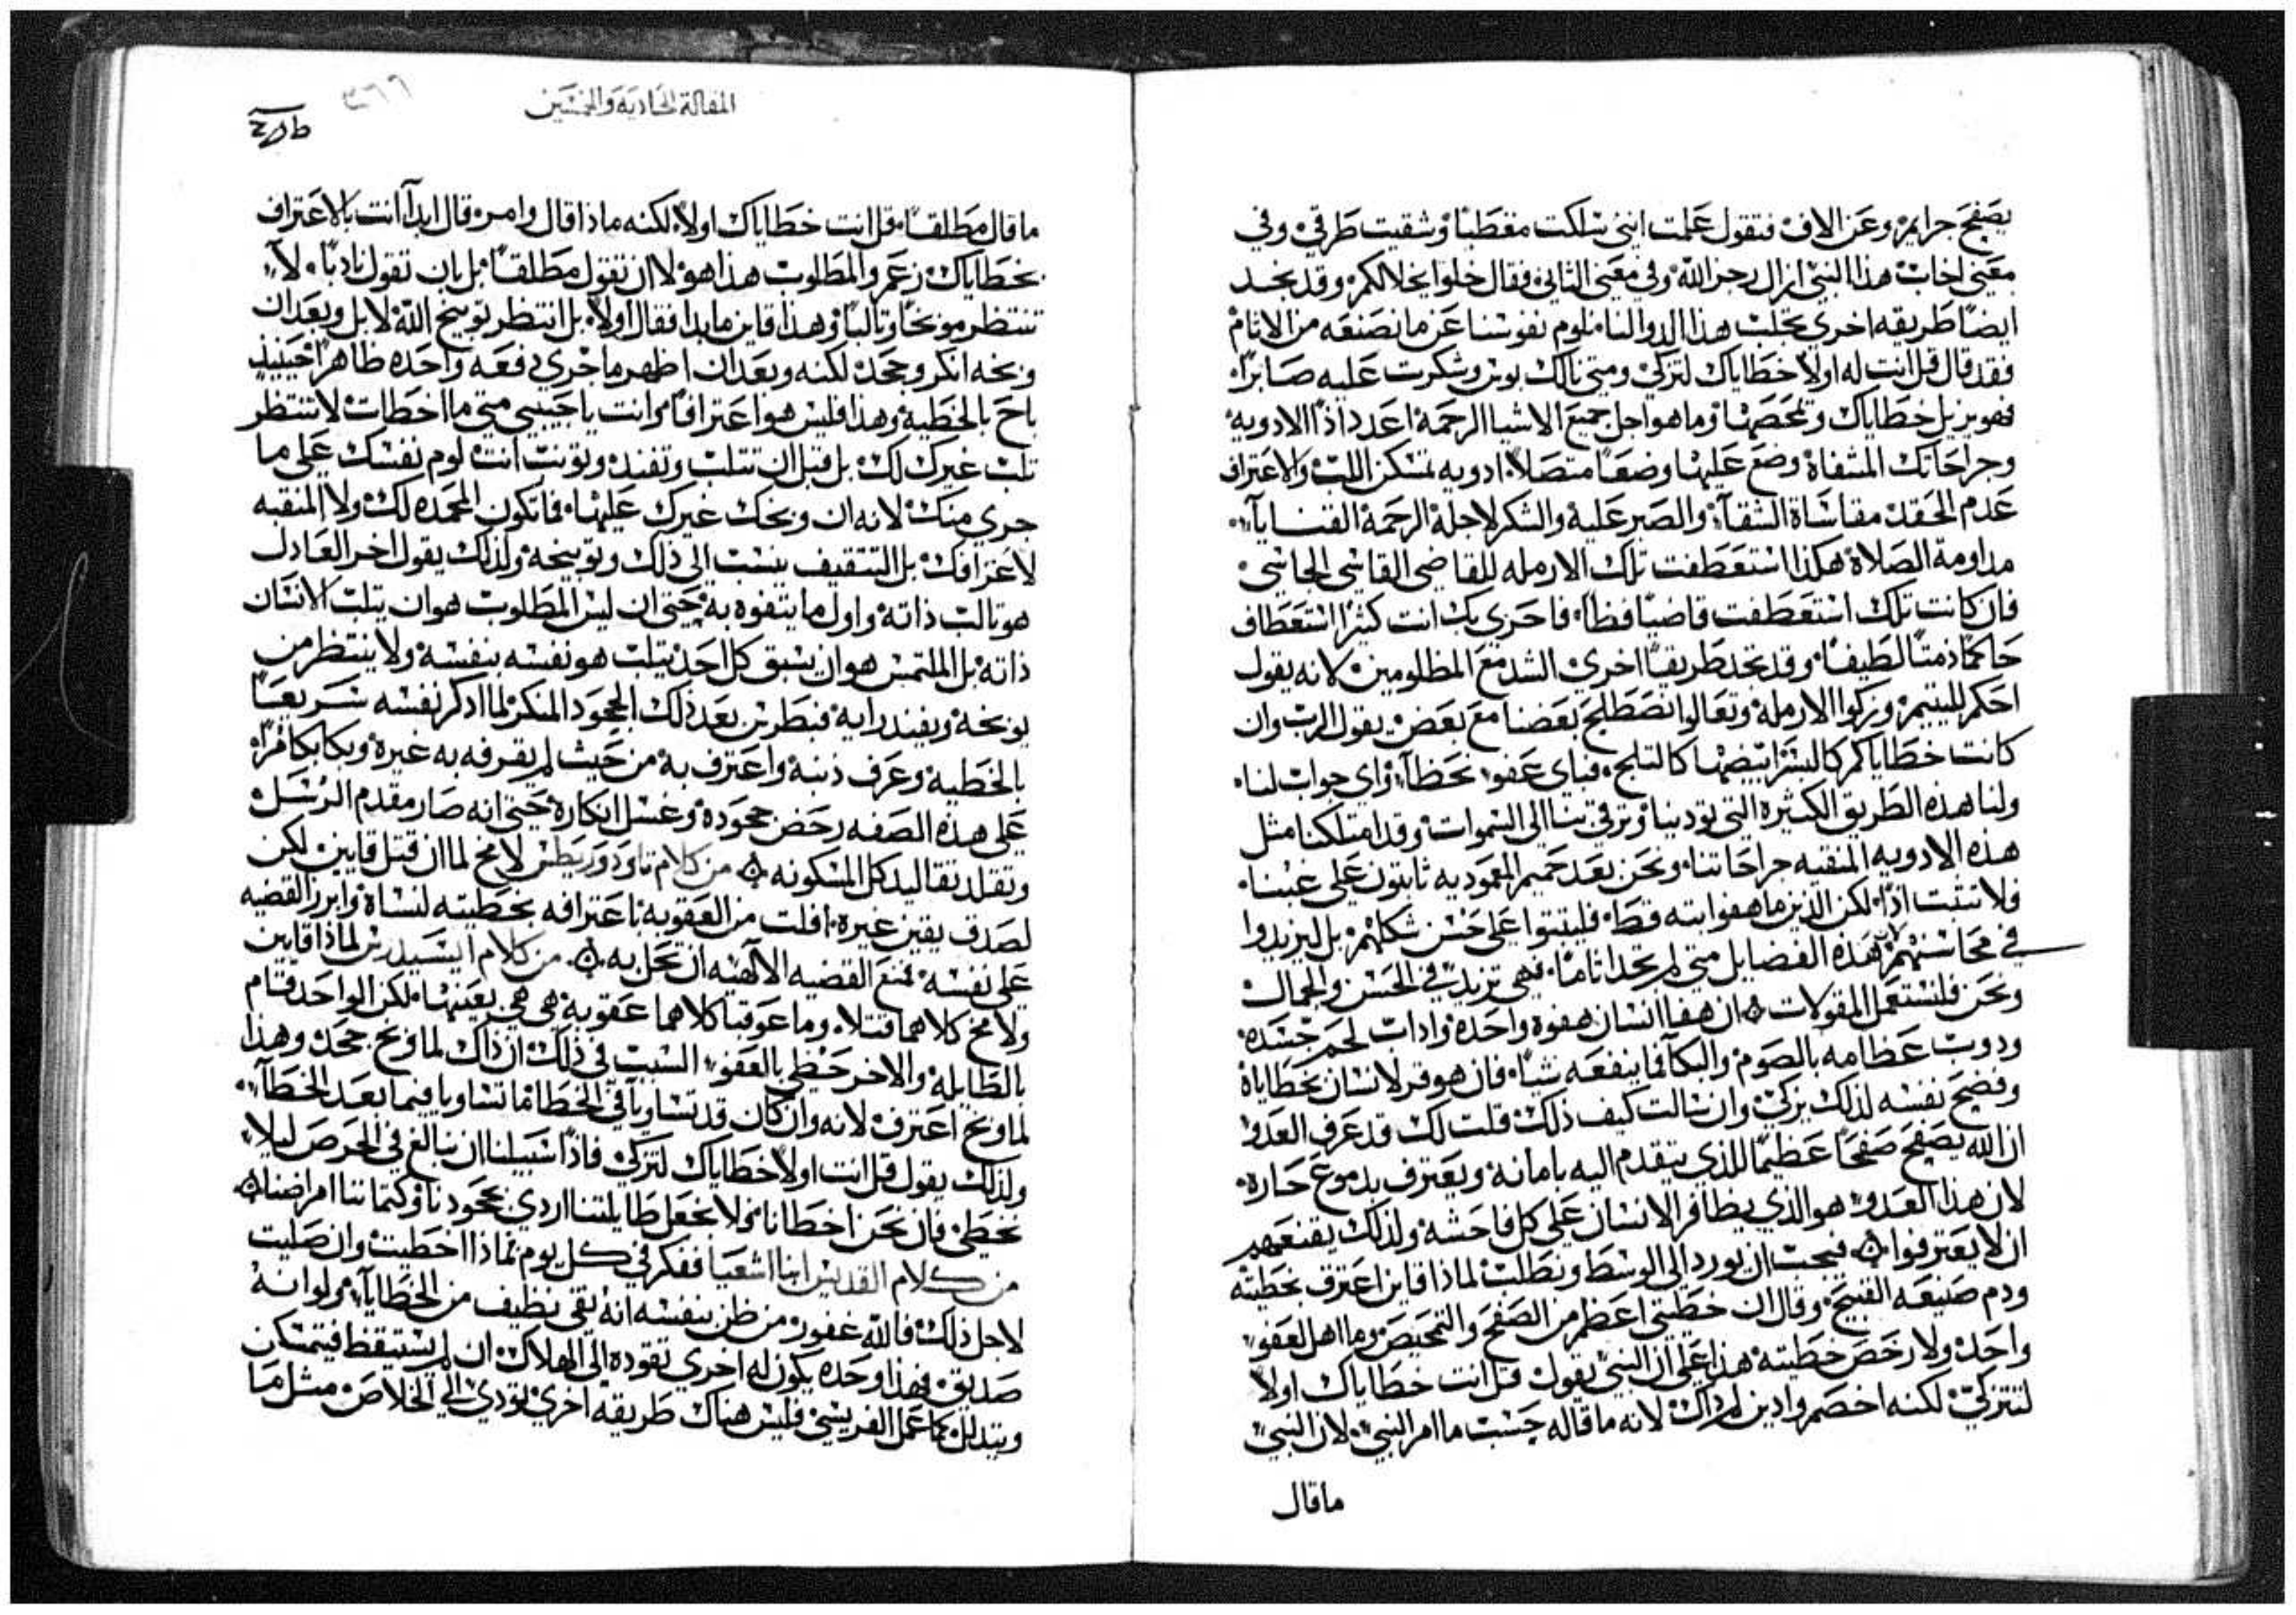 يصفح جرايم وعن الاف فتقول علمت انني سلكت مقطبًا وشقيت طرقي وفي
معنى اخاب هذا النبي ازال رجز الله وفي معنى الثاني فقال خلوا بخلالكم وقد نجد
ايضًا طريقه اخرى تجلب هذا الدوا لنا نلوم نفوسنا عن ما نصنعه من الاثام
فقد قال قل انت له اولاً خطاياك لتزكى ومتى نالك بوس وشكرت عليه صابرًا
فهو يزيل خطاياك وتمحصها وما هو اجل جميع الاشيا الرحمة اعدد اذًا الادويه
وجراحاتك المشفاة وضع عليها وضعًا متصلاً ادويه تسكن اللب والاعتراف
عدم الحقد مقاساة الشقآ والصبر عليه والشكر لاجله الرحمة القنايآ
مداومة الصلاة هكذا استعطفت تلك الارمله للقاضي القاسي الجاسي
فان كانت تلك استعطفت قاضيًا فظاً فاحرى بك انت كثيرًا استعطاف
حاكمًا ذمتًا لطيفًا وقد تجد طريقًا اخرى الشد مع المظلومين لانه يقول
احكم لليتيم وزكوا الارملة وتعالوا نصطلح بعضنا مع بعض يقول الرب وان
كانت خطاياكم كالبسر ابيضها كالثلج فباي عفو نحظآ واي جواب لنا
ولنا هذه الطريق الكثيرة التي تودينا وترقي بنا الى السموات وقد امتلكنا مثل
هذه الادويه المنقيه جراحاتنا ونحن بعد حميم المعموديه ثابتون على عيبنا
فلا نثبت اذًا لكن الذين ما هفوا بته قط فليثبتوا على حسن شكلهم بل ليزيدوا
في محاسنهم هذه الفضايل متى لم تجد اثامًا فهي تزيد في الحسن والجمال
ونحن فلنستعمل المقولات ۞ ان هفا انسان هفوة واحدة واذاب لحم جسده
ودوب عظامه بالصوم والبكآ فما ينفعه شيًا فان هو قر لانسان بخطاياه
وفضح نفسه لذلك يزكى وان سالت كيف ذلك قلت لك قد عرف العدو
ان الله يصفح صفحًا عظيمًا للذي يتقدم اليه بامانة ويعترف بدموع حاره
لان هذا العدو هو الذي يظافر الانسان على كل فاحشة ولذلك يقنعهم
ان لا يعترفوا ۞ فيجب ان يورد الى الوسط ونطلب لماذا قاين اعترف بخطيته
وذم صنيعه القبيح وقال ان خطيتي اعظم من الصفح والتمحيص وما اهل لعفو
واحد ولا رخص خطيته هذا على ان النبي يقول قل انت خطاياك اولاً
لتتزكى لكنه اخصم وادين لم ذاك لانه ما قاله حسب ما امر النبي لان النبي
ما قال
المقالة الحادية والخمسين
٣٦٦
ما قال مطلقًا قل انت خطاياك اولاً لكنه ماذا قال وامر قال ابدآ انت بالاعتراف
بخطاياك زعم والمطلوب هذا هو لا ان تقول مطلقًا بل بان تقول نادبًا لا
تنتظر موبخًا وثالبًا وهذا قاين ما بدا فقال اولاً بل انتظر توبيخ الله لا بل وبعد ان
وبخه انكر وجحد لكنه وبعد ان اظهر ما جرى دفعه واحده ظاهرًا حينيذ
باح بالخطية وهذا فليس هو اعترافًا وانت يا حبيبي متى ما اخطات لا تنتظر
ثلب غيرك لك بل قبل ان تثلب وتفند وتونب انت لوم نفسك على ما
جرى منك لانه ان وبخك غيرك عليها فما تكون المحمده لك ولا المنقبه
لاعترافك بل التثقيف ينسب الى ذلك وتوبيخه ولذلك يقول اخر العادل
هو ثالب ذاته واول ما يتفوه به حتى ان ليس المطلوب هو ان يثلب الانسان
ذاته بل الملتمس هو ان يسبق كل احد يثلب هو نفسه بنفسه ولا ينتظر من
يوبخه ويفند رايه فبطرس بعد ذلك الجحود المنكر لما ادكر نفسه سريعًا
بالخطية وعرف ذنبه واعترف به من حيث لم يقرفه به غيره وبكا بكا مرًا
على هذه الصفه رحض جحوده وغسل انكاره حتى انه صار مقدم الرسل
وتقلد تقاليد كل المسكونه ۞ من كلام تاودوريطس لامخ لما ان قتل قايين لكن
لصدق يقين غيره افلت من العقوبة باعترافه بخطيته لنساه وابرز القضيه
على نفسه فمنع القضيه الالهيه ان تحل به ۞ من كلام ايسيدرس لماذا قاين
ولامخ كلاهما قتلا وما عوقبا كلاهما عقوبة هي هي بعينها لكن الواحد قام
بالطايلة والاخر حظي بالعفو السبب في ذلك ان ذاك لما وبخ جحد وهذا
لما وبخ اعترف لانه وان كان قد تساويا في الخطا ما تساويا فيما بعد الخطآ
ولذلك يقول قل انت اولاً خطاياك لتزكى فاذًا سبيلنا ان نبالغ في الحرص ليلا
نخطي فان نحن اخطانا فلا نجعل طايلتنا اردى بجحودنا وكتماننا امراضنا ۞
من كلام القديس انبا اشعيا ففكر في كل يوم بماذا اخطيت وان صليت
لاجل ذلك فالله غفور من ظن بنفسه انه نقي نظيف من الخطايآ ولو انه
صديق فهذا وحده يكون له اخرى تقوده الى الهلاك ان لم يستيقظ فيتمسكن
ويتذلل كما عمل الفريسي فليس هناك طريقه اخرى تودي الى الخلاص مثل ما